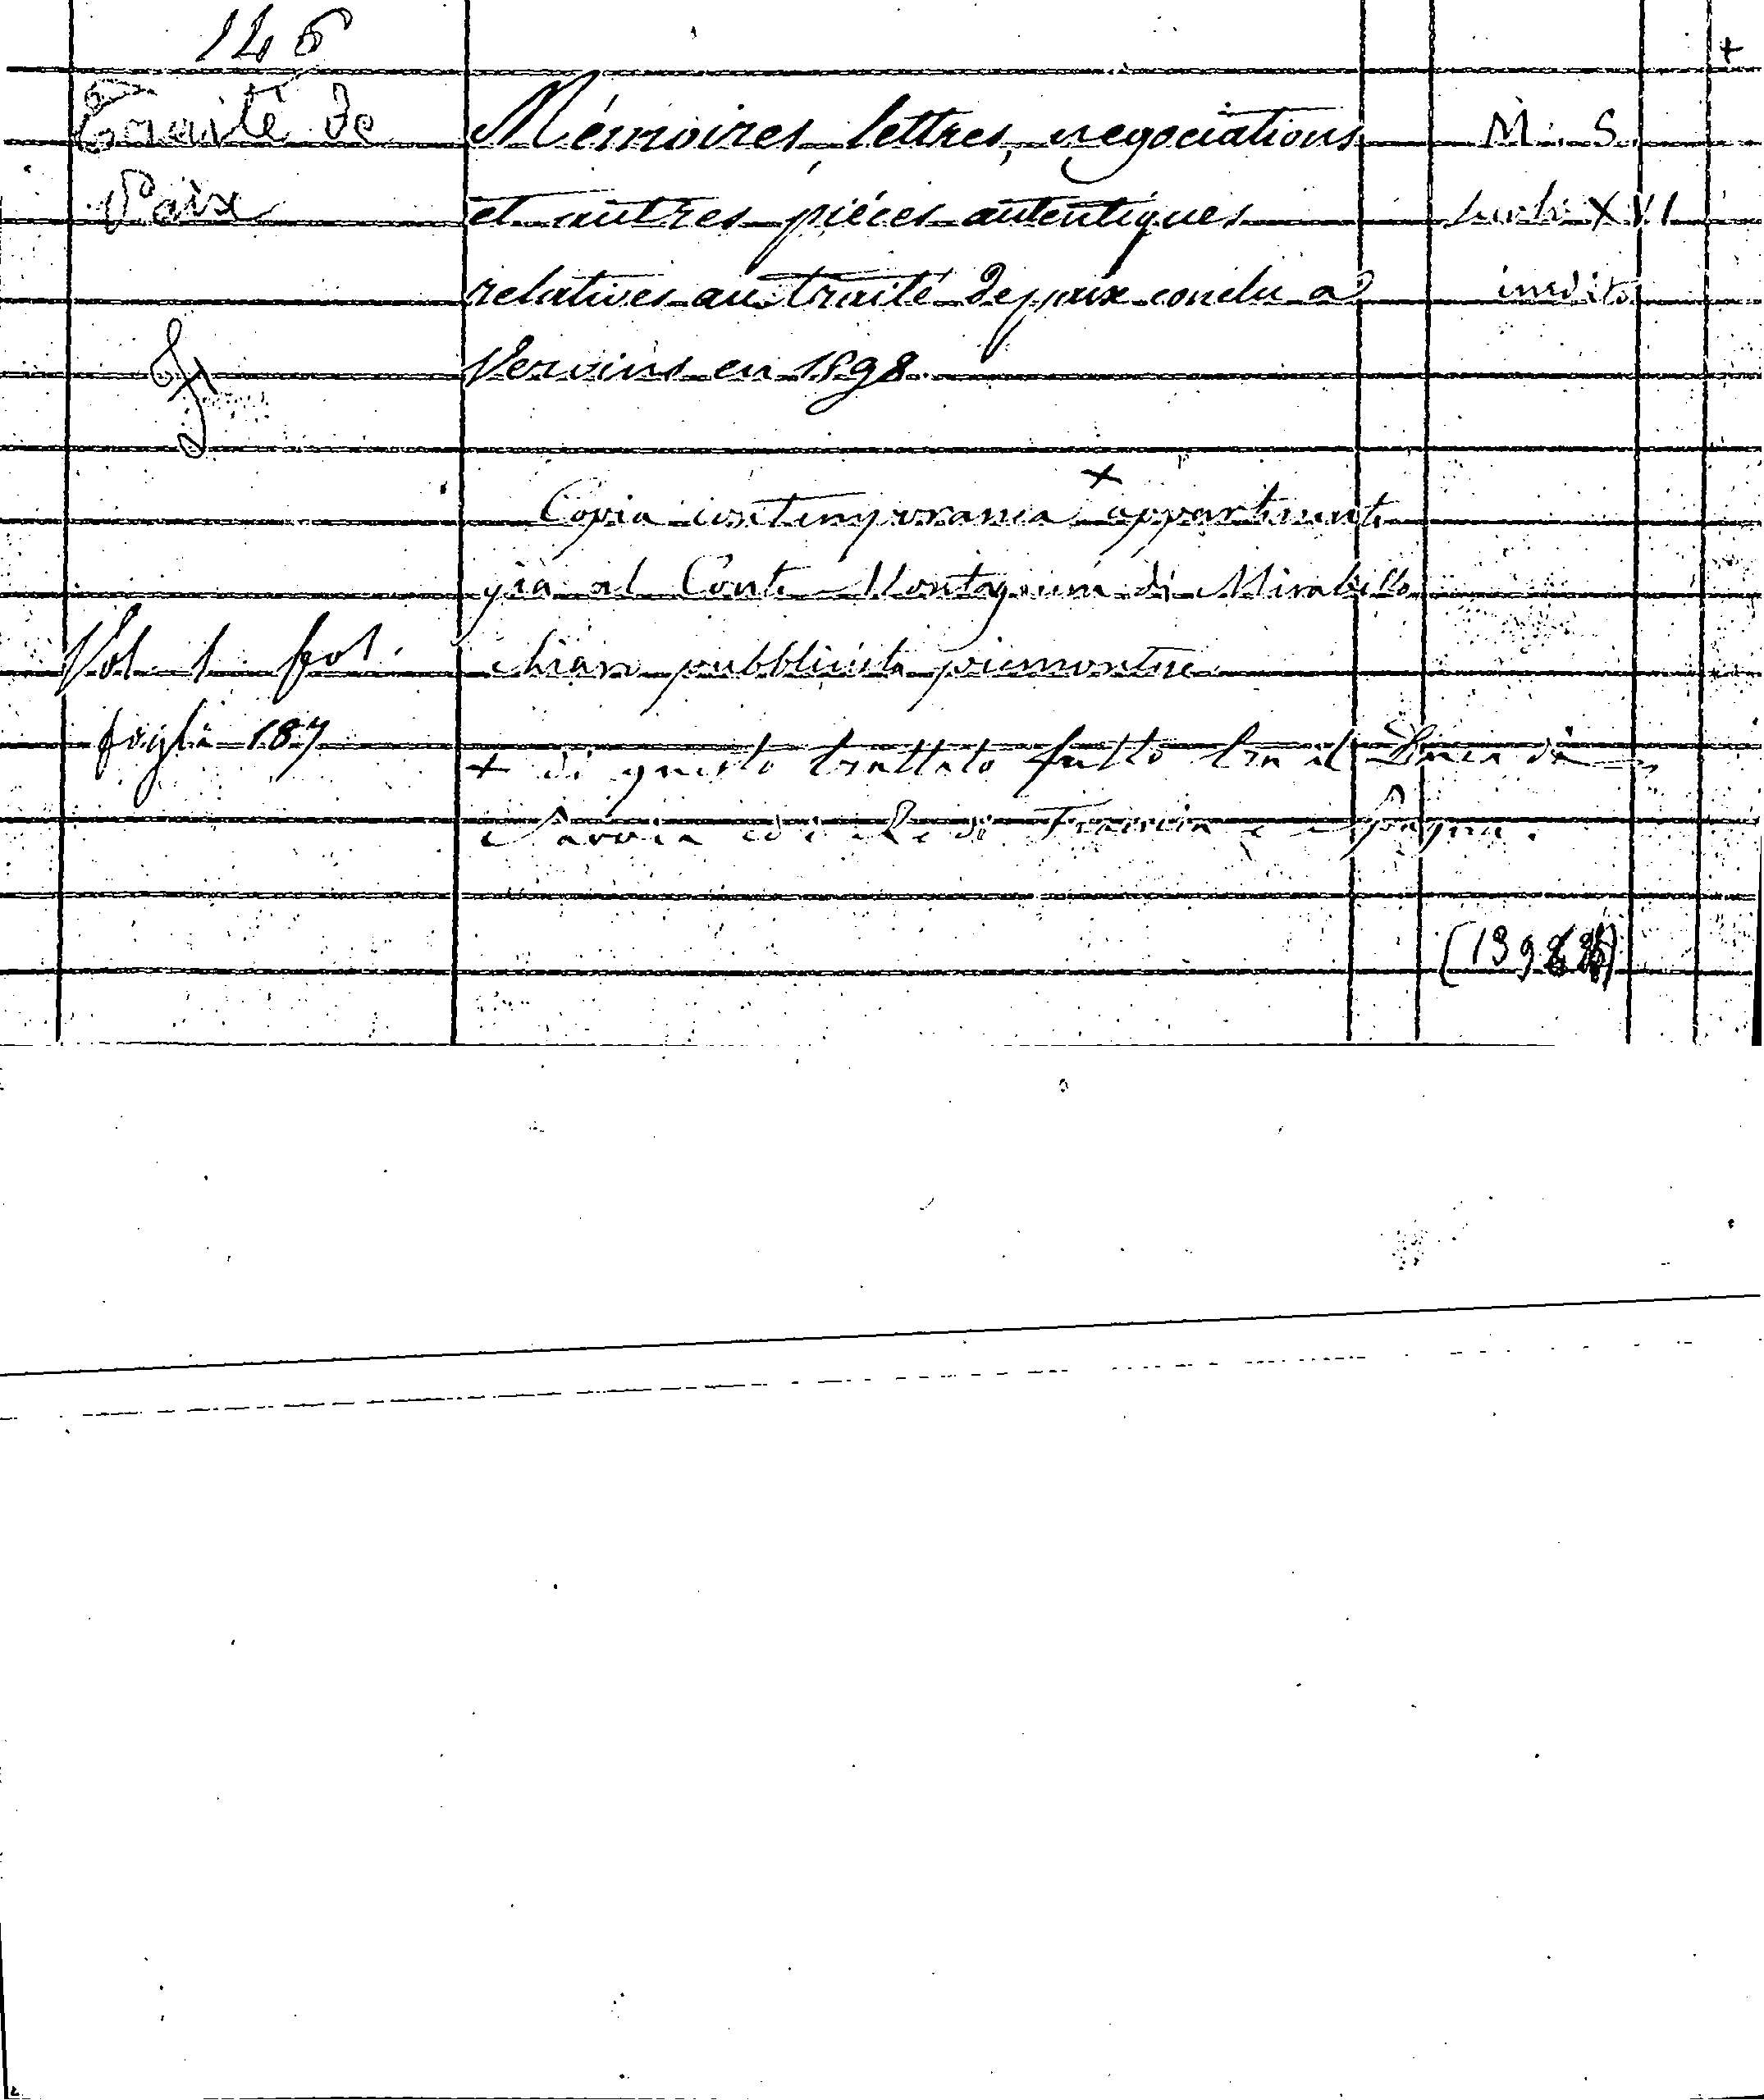 146
Traité de
Paix
Mémoires, lettres, negociations
et autres piéces autentiques
relatives au traité de paix conclu a
Vervins en 1598.
M. S.
XVI
inedito
+
Copia contemporanea + appartenente
già al Conte Montagnini di Mirabello
chiaro pubblicista piemontese
Vol. 1. fol.
fogli 187
+ di questo trattato fatto tra il Duca di
Savoia ed i Re di Francia e Spagna.